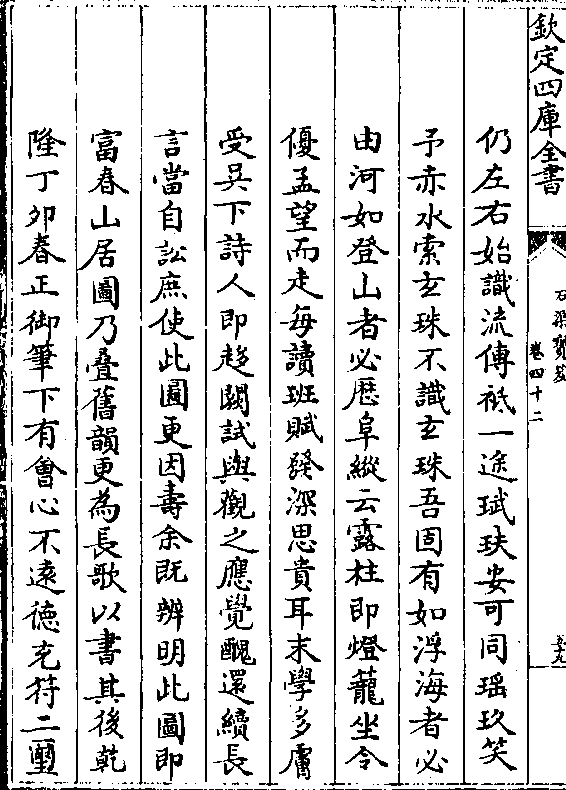 欽定四庫全書
石渠寳笈
卷四十二
五十九
仍左右始識流傳祗一途珷玞安可同瑶玖笑
予赤水索玄珠不識玄珠吾固有如浮海者必
由河如登山者必歴阜縱云露柱即燈籠坐令
優孟望而走每讀班賦發深思貴耳末學多膚
受吳下詩人即趍闕試與觀之應覺醜還續長
言當自訟庶使此圖更因壽余既辨明此圖即
富春山居圖乃疊舊韻更為長歌以書其後乾
隆丁夘春正御筆下有會心不遠徳充符二璽